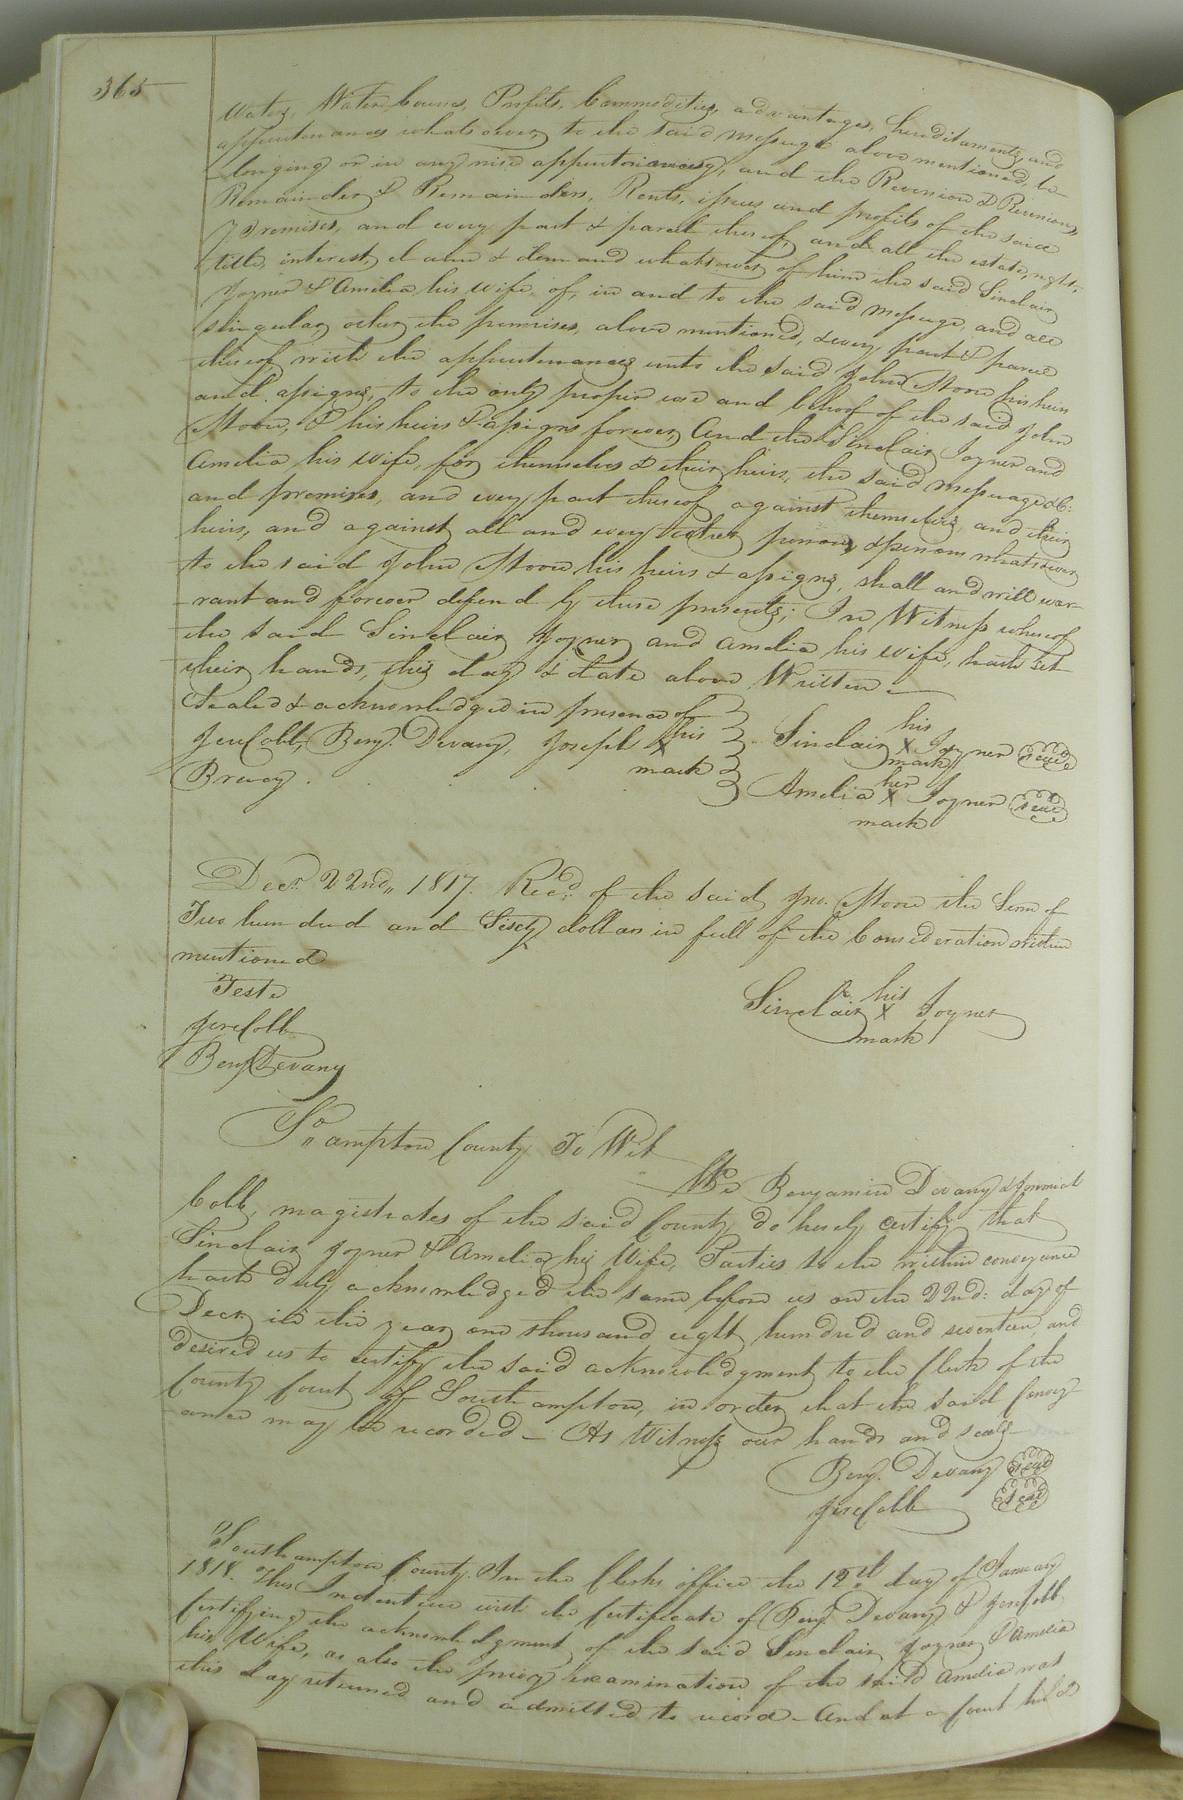 365
Water, Water Courses, Profits, Commodities, advantages, hereditaments, and
appurtenances whatsoever, to the said messuage above mentioned, be-
longing or in any wise appertaining, and the Reversion & Reversions,
Remainder & Remainders, Rents, issues and profits of the said
Premises, and every part & parcel thereof, and all the estate, right,
title, interest, claim & demand whatsoever of him the said Sinclair
Joyner & Amelia his wife, of, in and to the said messuage, and all
singular other the premises, above mentioned, & every part & parcel
thereof with the appurtenances unto the said John Moore his heirs
and assigns, to the only proper use and behoof of the said John
Moore, & his heirs & assigns forever, And the Sinclair Joyner and
Amelia his wife, for themselves & their heirs, the said messuage &C:
and premises, and every part thereof against themselves, and their
heirs, and against all and every other person, & persons whatsoever
to the said John Moore his heirs & assigns, shall and will war-
rant and forever defend by these presents; In Witness whereof
the said Sinclair Joyner and Amelia his wife, hath set
their hands, this day & date above Written —
Sealed & acknowledged in presence of
Jere Cobb, Benj. Devany, Joseph his X mark
Brewey.
Sinclair his X mark Joyner seal
Amelia her X mark Joyner seal
Decr. 22nd,, 1817. Recd. of the said Jno. Moore the Sum of
Two hundred and Sixty dollars in full of the Consideration within
mentioned
Teste
Jere Cobb
Benj Devany
Sinclair his X mark Joyner
So,, ampton County To Wit
We Benjamin Devany & Jeremiah
Cobb, magistrates of the said County do hereby certify that
Sinclair Joyner & Amelia his Wife, Parties to the within conveyance
hath duly acknowledged the same before us on the 22nd: day of
Decr. in the year one thousand eight hundred and seventeen, and
desired us to certify the said acknowledgment to the Clerk of the
County Court of Southampton, in order that the said Convey-
ance may be recorded — As Witness our hands and seals
Benj. Devany seal
Jere Cobb seal
Southampton County. In the Clerks office the 12th day of January
1818. This Indenture with the Certificate of Benj. Devany & Jere Cobb
Certifying the acknowledgment of the said Sinclair Joyner & Amelia
his Wife, as also the privy examination of the said Amelia was
this day returned and admitted to record — And at a Court held